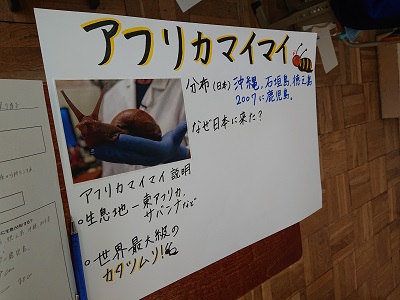 アフリカマイマイ
分布(日本)沖縄,石垣島,徳之島
2007に鹿児島。
なぜ日本に来た?
アフリカマイマイ 説明
○生息地ー東アフリカ,
サバンナなど
○世界最大級の
カタツムリ!